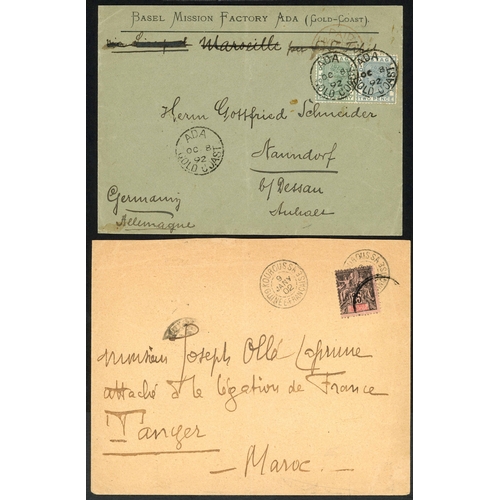 BASEL MISSION FACTORY ADA (GOLD-COAST).
via Liverpool Marseille per
ADA
OC 8
92
GOLD COAST
ADA
OC 8
92
GOLD COAST
TWO PENCE
Herrn Gottfried Schneider
ADA
OC 8
92
GOLD COAST
Nanndorf
b/Dessau
Anhalt
Germany
Allemagne
KOUROUSSA
9
JANV
02
GUINÉE FRANÇAISE
Monsieur Joseph Ollé Laprune
attaché à la légation de France
Tanger
Maroc.